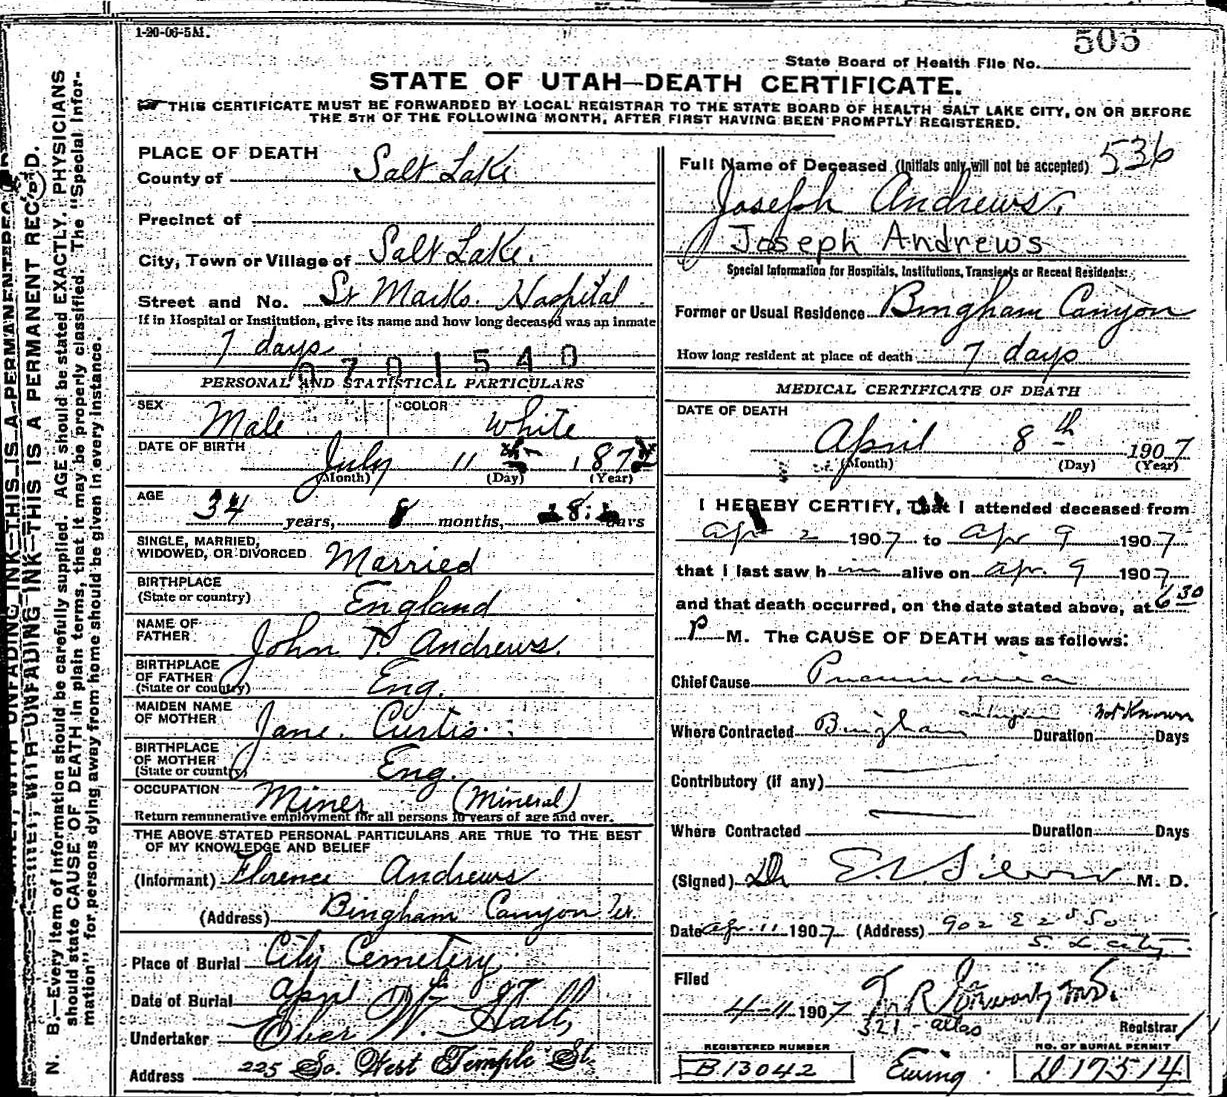 1-20-06-5M.
505
State Board of Health File No.
STATE OF UTAH—DEATH CERTIFICATE.
THIS CERTIFICATE MUST BE FORWARDED BY LOCAL REGISTRAR TO THE STATE BOARD OF HEALTH SALT LAKE CITY, ON OR BEFORE
THE 5TH OF THE FOLLOWING MONTH, AFTER FIRST HAVING BEEN PROMPTLY REGISTERED.
PLACE OF DEATH
County of Salt Lake
Precinct of
City, Town or Village of Salt Lake.
Street and No. St Marks. Hospital
If in Hospital or Institution, give its name and how long deceased was an inmate
7 days
0701540
PERSONAL AND STATISTICAL PARTICULARS
SEX Male COLOR White
DATE OF BIRTH July 11 187
(Month) (Day) (Year)
AGE 34 years, 8 months, days
SINGLE, MARRIED, WIDOWED, OR DIVORCED Married
BIRTHPLACE (State or country) England
NAME OF FATHER John P Andrews.
BIRTHPLACE OF FATHER (State or country) Eng.
MAIDEN NAME OF MOTHER Jane. Curtis.
BIRTHPLACE OF MOTHER (State or country) Eng.
OCCUPATION Miner (Mineral)
Return remunerative employment for all persons 10 years of age and over.
THE ABOVE STATED PERSONAL PARTICULARS ARE TRUE TO THE BEST
OF MY KNOWLEDGE AND BELIEF
(Informant) Florence Andrews
(Address) Bingham Canyon
Place of Burial City Cemetery
Date of Burial April
Undertaker Eber W. Hall
Address 225 So. West Temple St.
Full Name of Deceased (Initials only will not be accepted) 536
Joseph Andrews.
Joseph Andrews
Special Information for Hospitals, Institutions, Transients or Recent Residents:
Former or Usual Residence Bingham Canyon
How long resident at place of death 7 days
MEDICAL CERTIFICATE OF DEATH
DATE OF DEATH
April 8th 1907
(Month) (Day) (Year)
I HEREBY CERTIFY, That I attended deceased from
Apr 2 1907 to Apr 9 1907
that I last saw him alive on Apr. 9 1907
and that death occurred, on the date stated above, at 6 30
P M. The CAUSE OF DEATH was as follows:
Chief Cause Pneumonia
Where Contracted Bingham Duration Not Known Days
Contributory (if any)
Where Contracted Duration Days
(Signed) Dr M. D.
Date Apr. 11 1907 (Address) 902 E 2nd So
S. L. City.
Filed
4-11 1907
321 - atlas Registrar
REGISTERED NUMBER
B 13042
Ewing.
NO. OF BURIAL PERMIT
D 17514
N. B.—Every item of information should be carefully supplied. AGE should be stated EXACTLY. PHYSICIANS
should state CAUSE OF DEATH in plain terms, that it may be properly classified. The "Special Infor-
mation" for persons dying away from home should be given in every instance.
WITH UNFADING INK—THIS IS A PERMANENT RECORD.